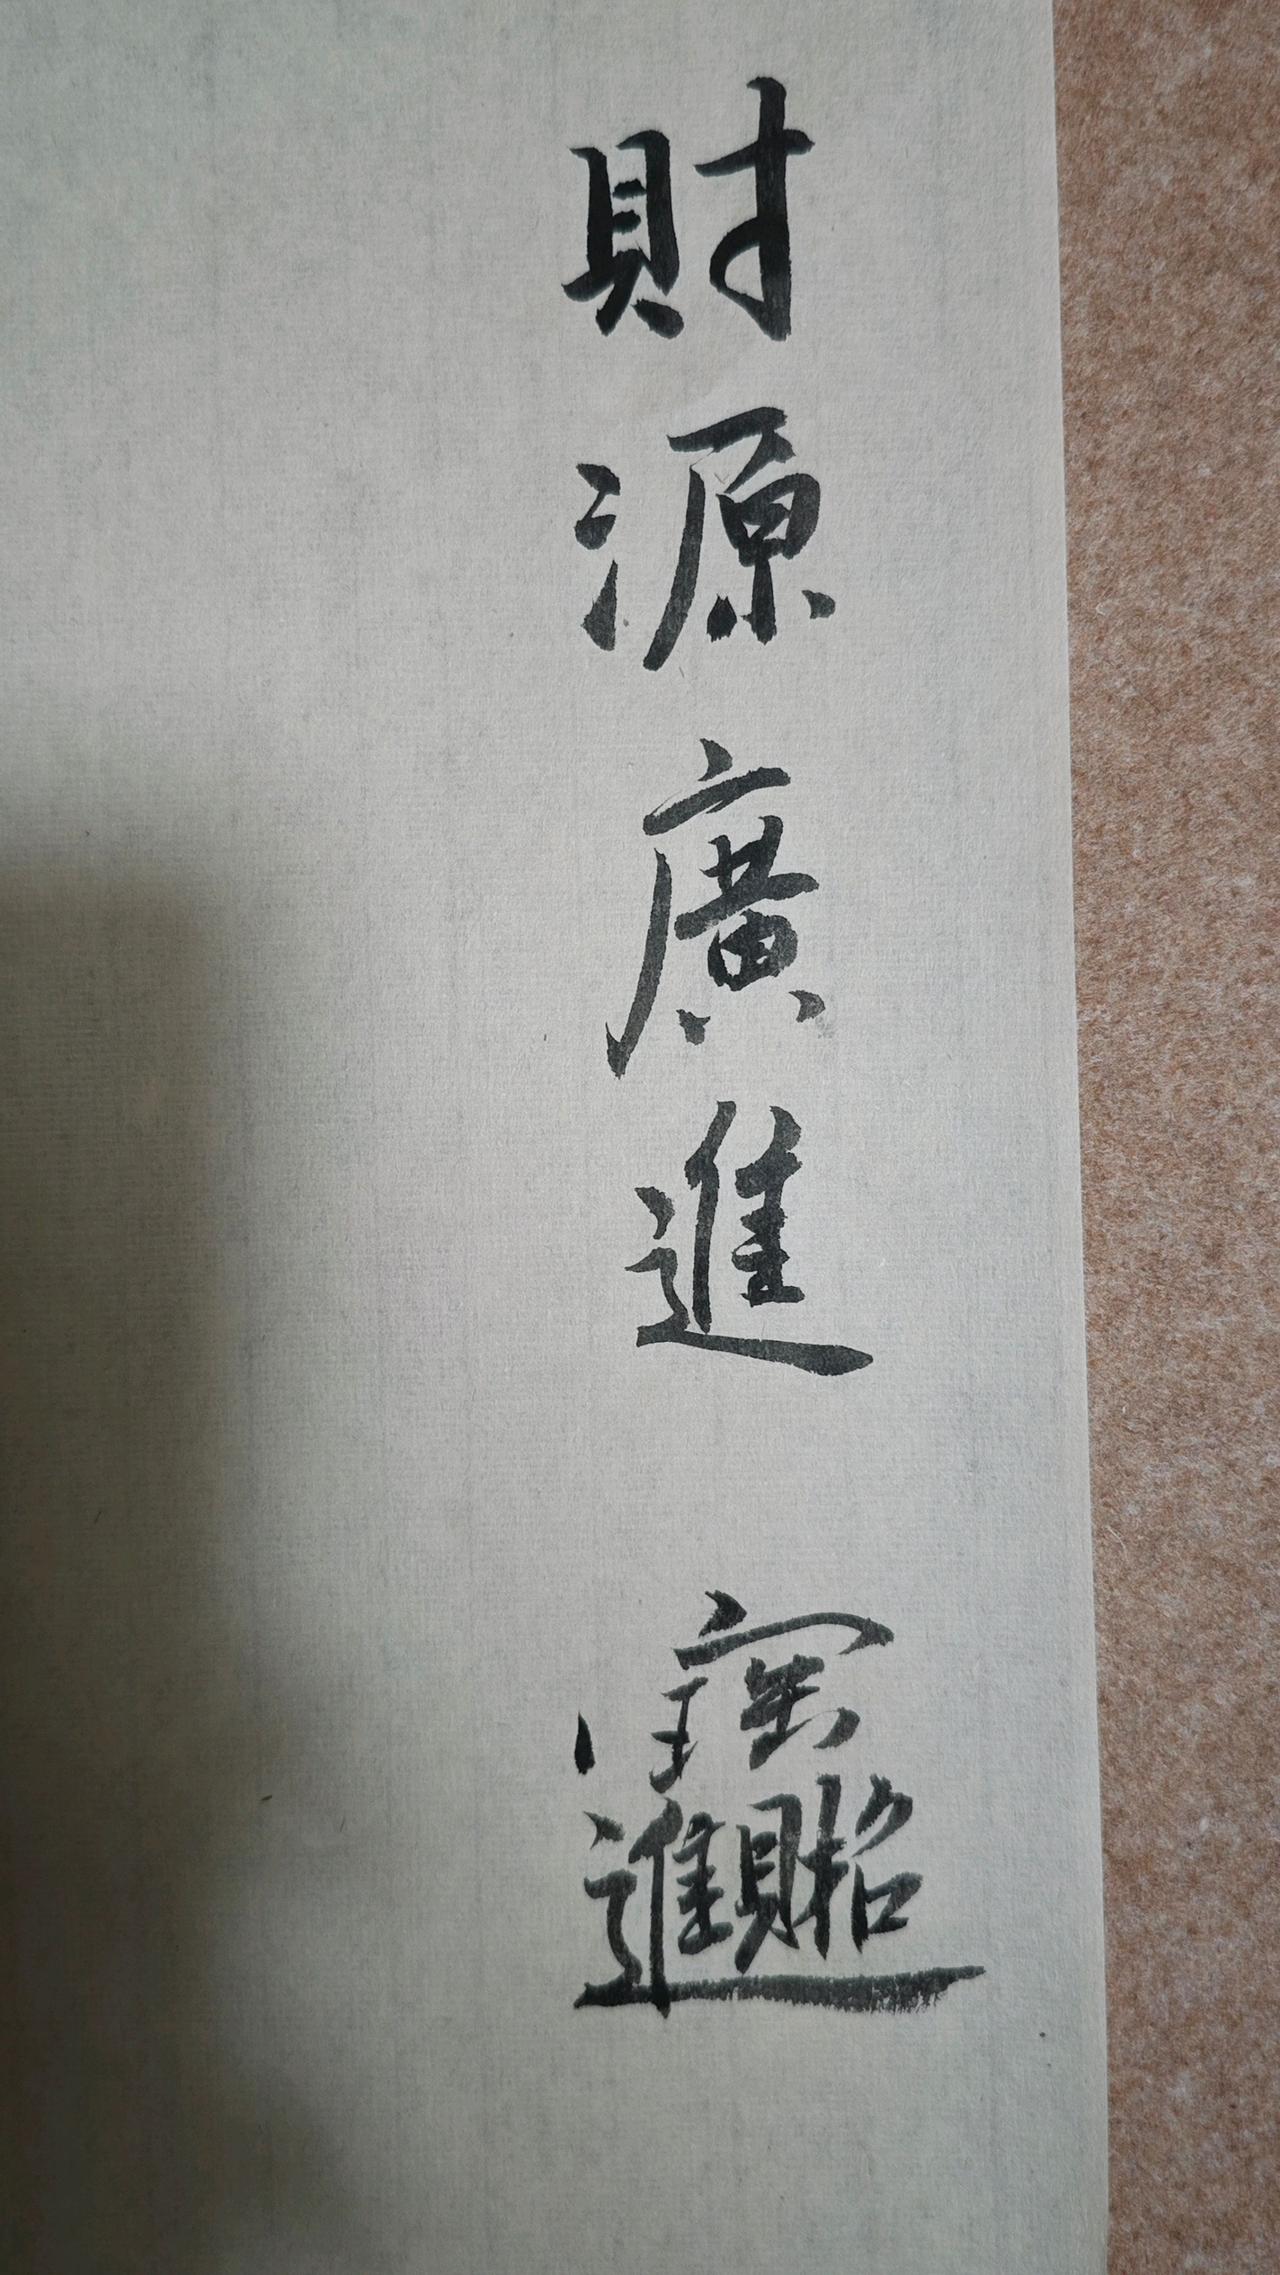 財源廣進
招財進寶